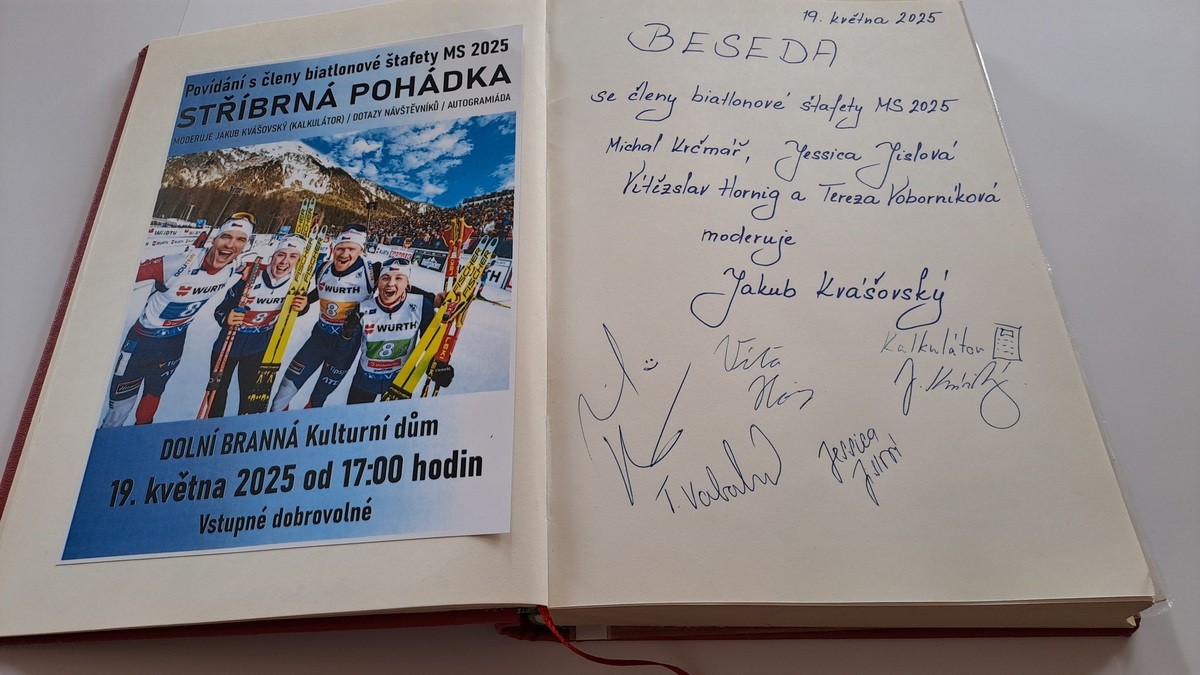 Povídání s členy biatlonové štafety MS 2025
STŘÍBRNÁ POHÁDKA
MODERUJE JAKUB KVÁŠOVSKÝ (KALKULÁTOR) / DOTAZY NÁVŠTĚVNÍKŮ / AUTOGRAMIÁDA
WÜRTH
WÜRTH
WÜRTH
WÜRTH
8
8
8
DOLNÍ BRANNÁ Kulturní dům
19. května 2025 od 17:00 hodin
Vstupné dobrovolné
19. května 2025
BESEDA
se členy biatlonové štafety MS 2025
Michal Krčmář, Jessica Jislová
Vítězslav Hornig a Tereza Voborníková
moderuje
Jakub Kvášovský
Kalkulátor
Víťa
Jessica